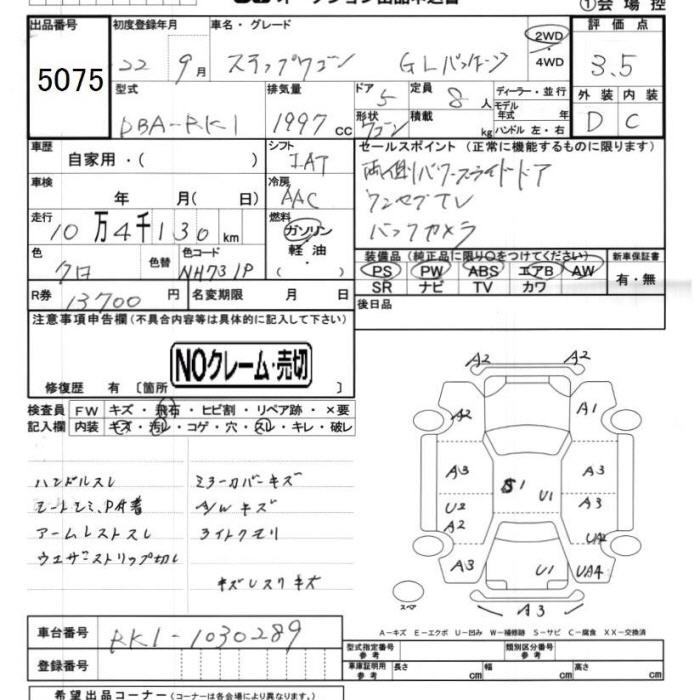 オークション出品申込書
①会場控
出品番号 初度登録年月 車名・グレード 評価点
5075 22 9月 ステップワゴン GLパッケージ 2WD ・ 4WD 3.5
型式 排気量 ドア 定員 ディーラー・並行 外装 内装
モデル年式 年
DBA-RK1 1997cc 5 8人 D C
形状 積載 kg ハンドル 左・右
ワゴン
車歴 シフト セールスポイント (正常に機能するものに限ります)
自家用・( ) IAT 両側パワースライドドア
車検 冷房 ワンセグTV
年 月( 日) AAC バックカメラ
走行 燃料
10万4千130km ガソリン
軽油
( )
色 色替 色コード 装備品 (純正品に限り○をつけてください) 新車保証書
クロ NH731P PS PW ABS エアB AW 有・無
SR ナビ TV カワ
R券 13700円 名変期限 月 日 後日品
注意事項申告欄(不具合内容等は具体的に記入して下さい)
NOクレーム・売切
修復歴 有 〔箇所 〕
検査員 FW キズ・飛石・ヒビ割・リペア跡・×要
記入欄 内装 キズ・汚レ・コゲ・穴・スレ・キレ・破レ
ハンドルスレ ミラーカバーキズ
A/Wキズ
アームレストスレ ライトクモリ
ウェザストリップ切レ
キズレスリキズ
A2 A2
A2 A1
A3 A3
S1 U1 A3
U2
A2 UA2
A3 U1 UA4
スペア A3
A-キズ E-エクボ U-凹み W-補修跡 S-サビ C-腐食 XX-交換済
車台番号 RK1-1030289 型式指定番号 参考 類別区分番号 参考
登録番号 車庫証明用 参考 長さ cm 幅 cm 高さ cm
希望出品コーナー(コーナーは各会場により異なります。)